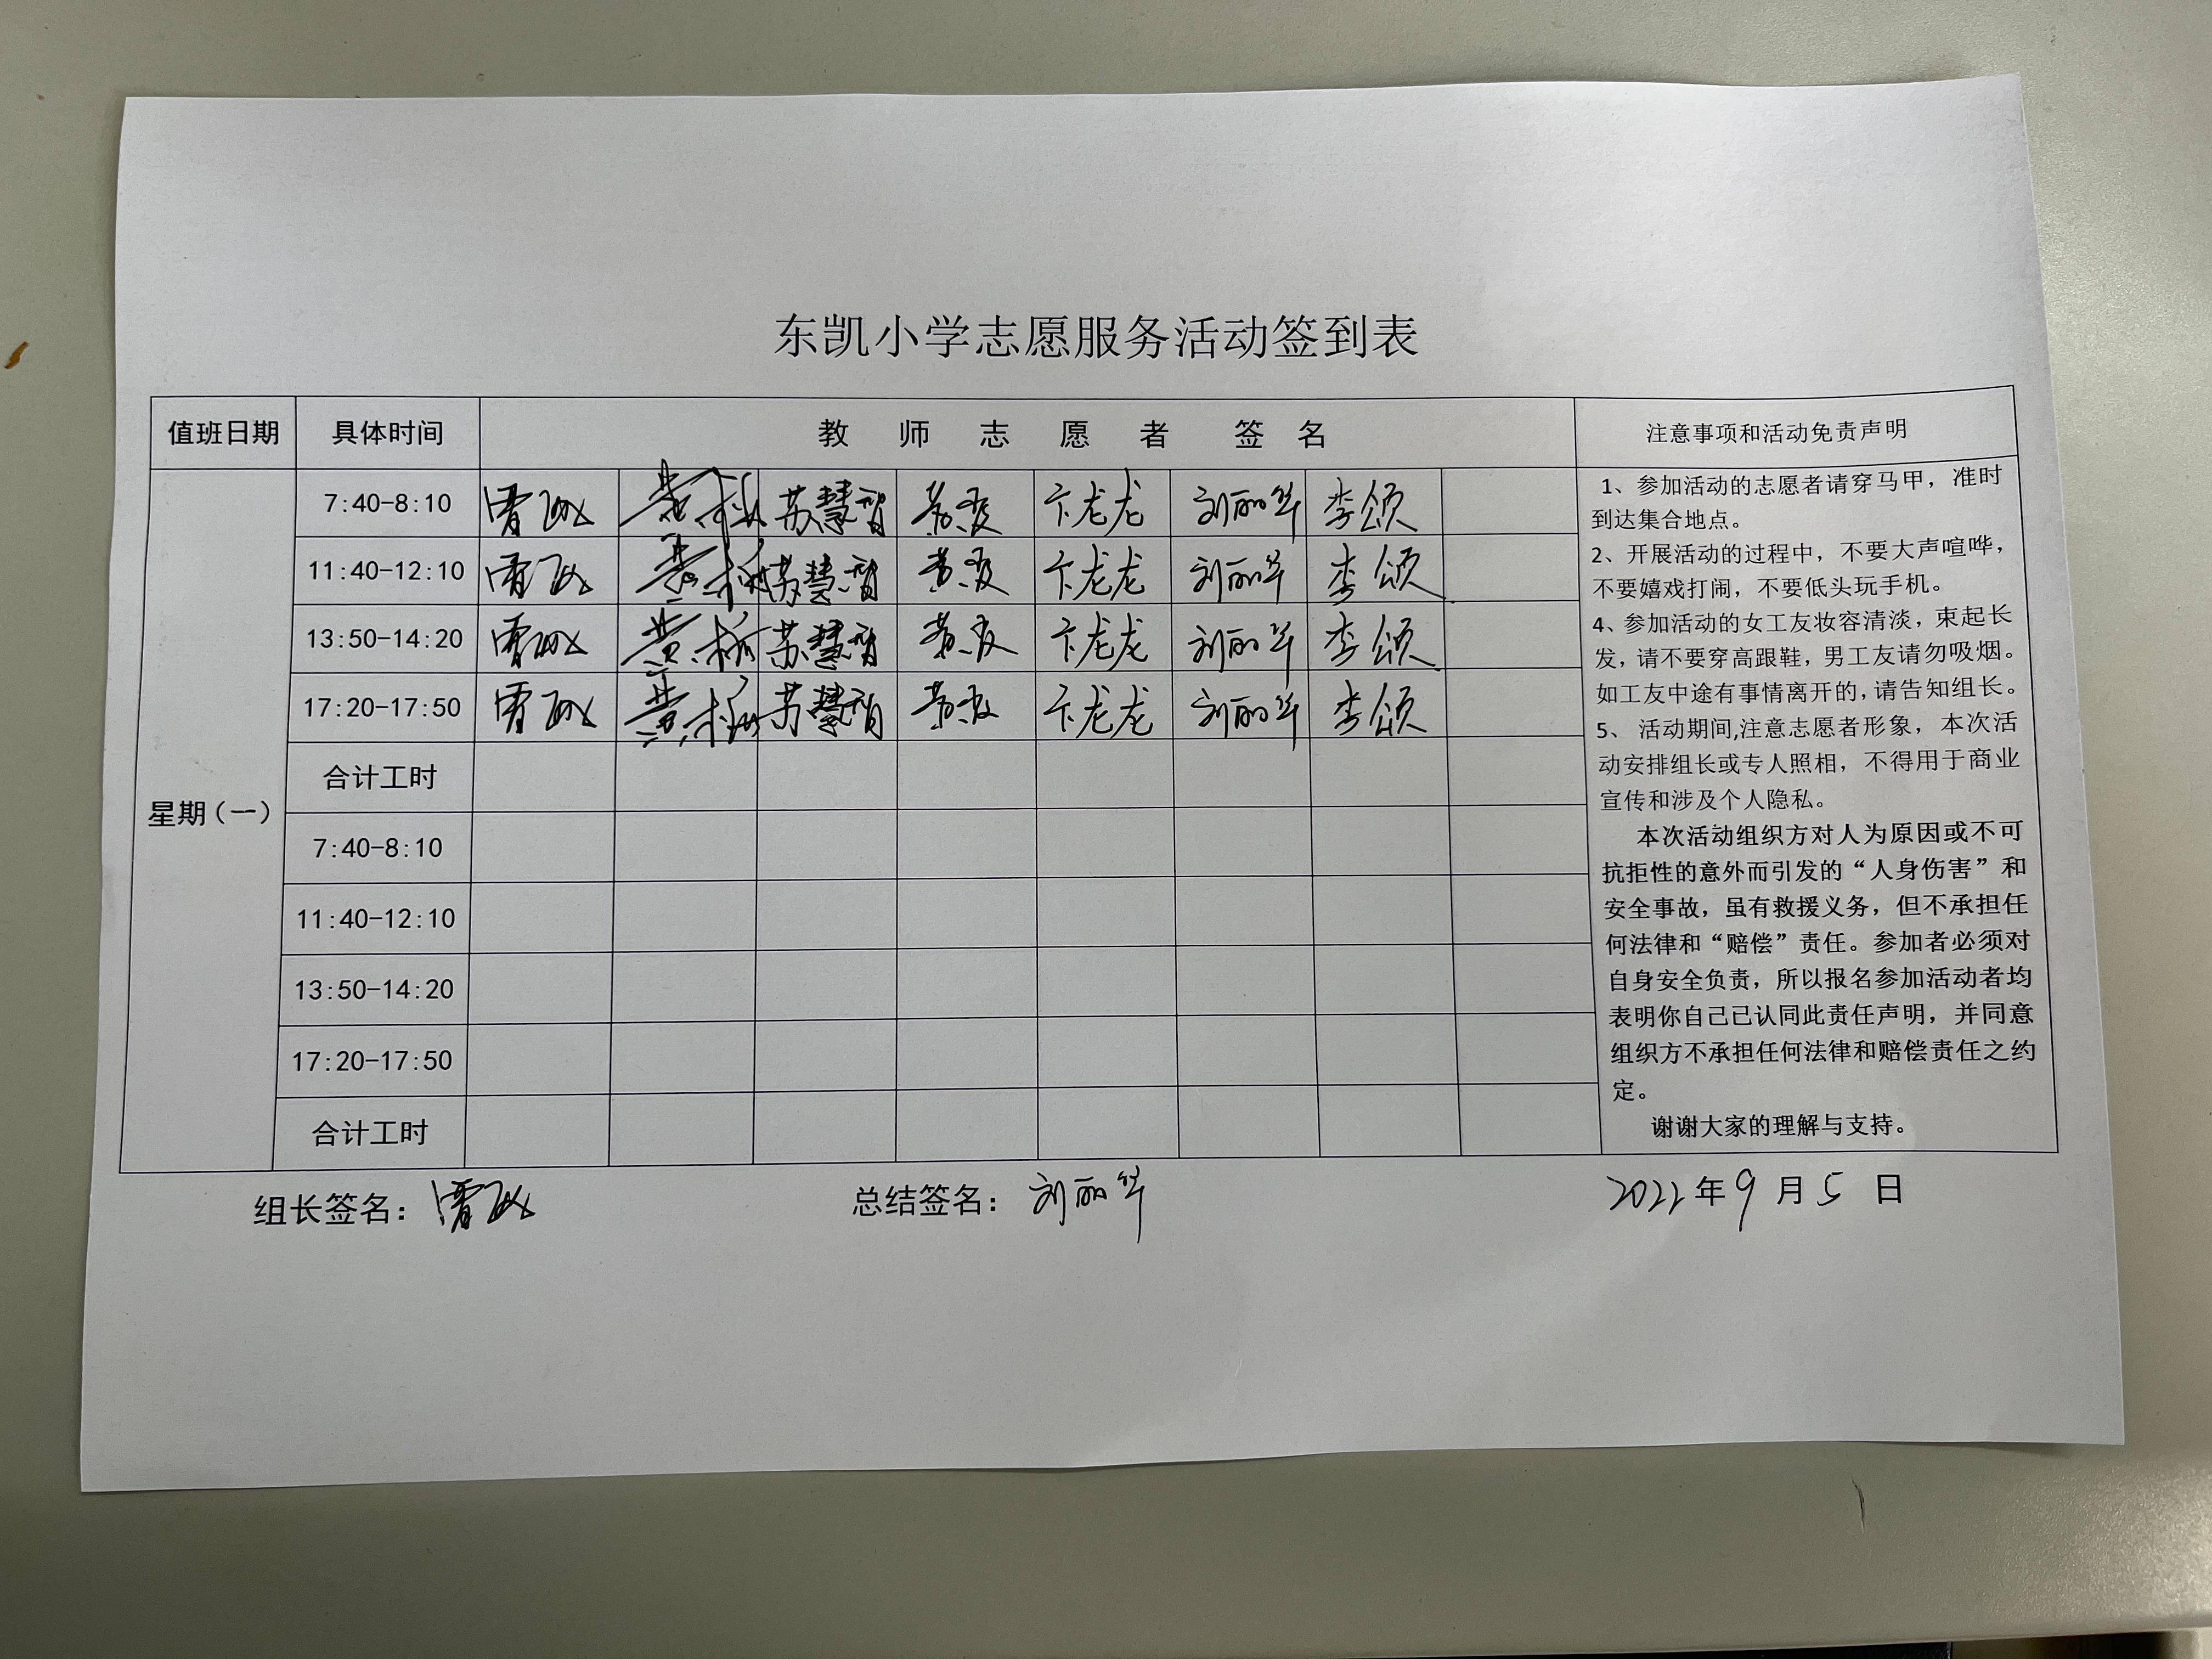 东凯小学志愿服务活动签到表
值班日期 具体时间 教师志愿者签名 注意事项和活动免责声明
星期(一)
7:40-8:10 苏慧智 卞龙龙 刘丽华 李颂
11:40-12:10 苏慧智 卞龙龙 刘丽华 李颂
13:50-14:20 苏慧智 卞龙龙 刘丽华 李颂
17:20-17:50 苏慧智 卞龙龙 刘丽华 李颂
合计工时
7:40-8:10
11:40-12:10
13:50-14:20
17:20-17:50
合计工时
1、参加活动的志愿者请穿马甲，准时
到达集合地点。
2、开展活动的过程中，不要大声喧哗，
不要嬉戏打闹，不要低头玩手机。
4、参加活动的女工友妆容清淡，束起长
发，请不要穿高跟鞋，男工友请勿吸烟。
如工友中途有事情离开的，请告知组长。
5、 活动期间,注意志愿者形象，本次活
动安排组长或专人照相，不得用于商业
宣传和涉及个人隐私。
本次活动组织方对人为原因或不可
抗拒性的意外而引发的“人身伤害”和
安全事故，虽有救援义务，但不承担任
何法律和“赔偿”责任。参加者必须对
自身安全负责，所以报名参加活动者均
表明你自己已认同此责任声明，并同意
组织方不承担任何法律和赔偿责任之约
定。
谢谢大家的理解与支持。
组长签名： 总结签名：刘丽华 2022年9月5日